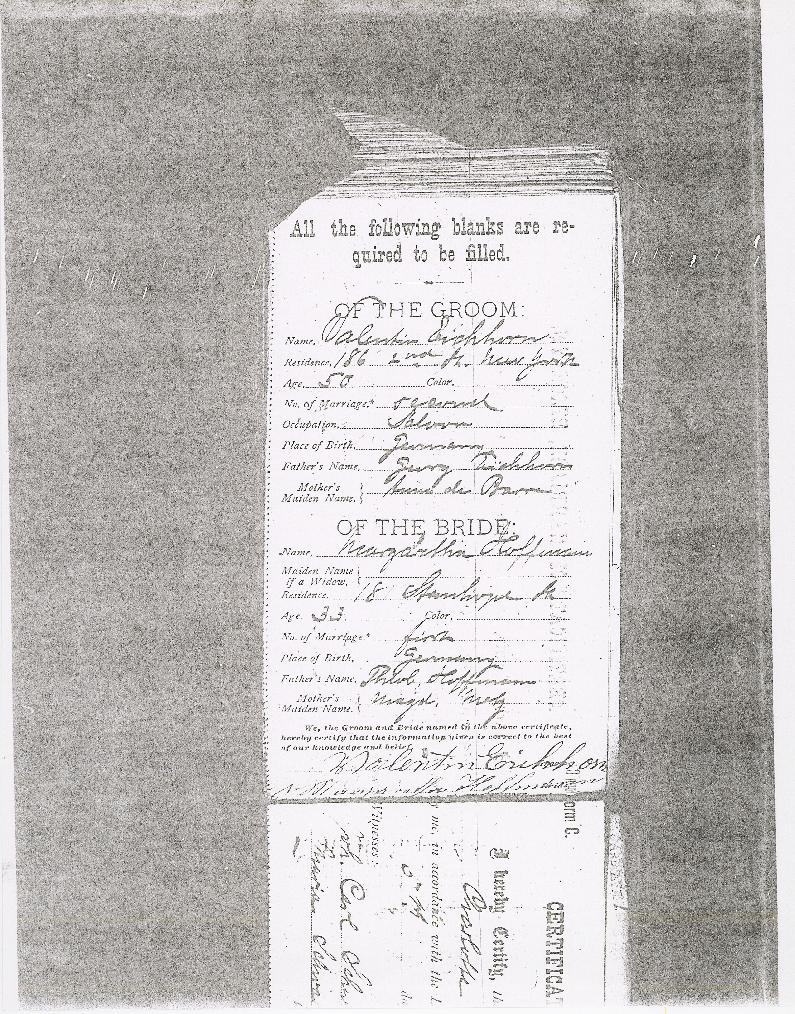 All the following blanks are re-
quired to be filled.
OF THE GROOM:
Name, Valentin Eichhorn
Residence, 186 2nd St. New York
Age, 50 Color,
No. of Marriage,* second
Occupation, Saloon
Place of Birth, Germany
Father's Name, Eichhorn
Mother's
Maiden Name,
OF THE BRIDE:
Name, Hoffmann
Maiden Name
if a Widow,
Residence, 18 Stanhope St
Age, 33 Color,
No. of Marriage* first
Place of Birth, Germany
Father's Name, Hoffmann
Mother's
Maiden Name, Magd.
We, the Groom and Bride named in the above certificate,
hereby certify that the information given is correct to the best
of our knowledge and belief,
Valentin Eichhorn
Form C.
CERTIFICA
I hereby Certify, th
me, in accordance with the L
Witnesses:
Carl